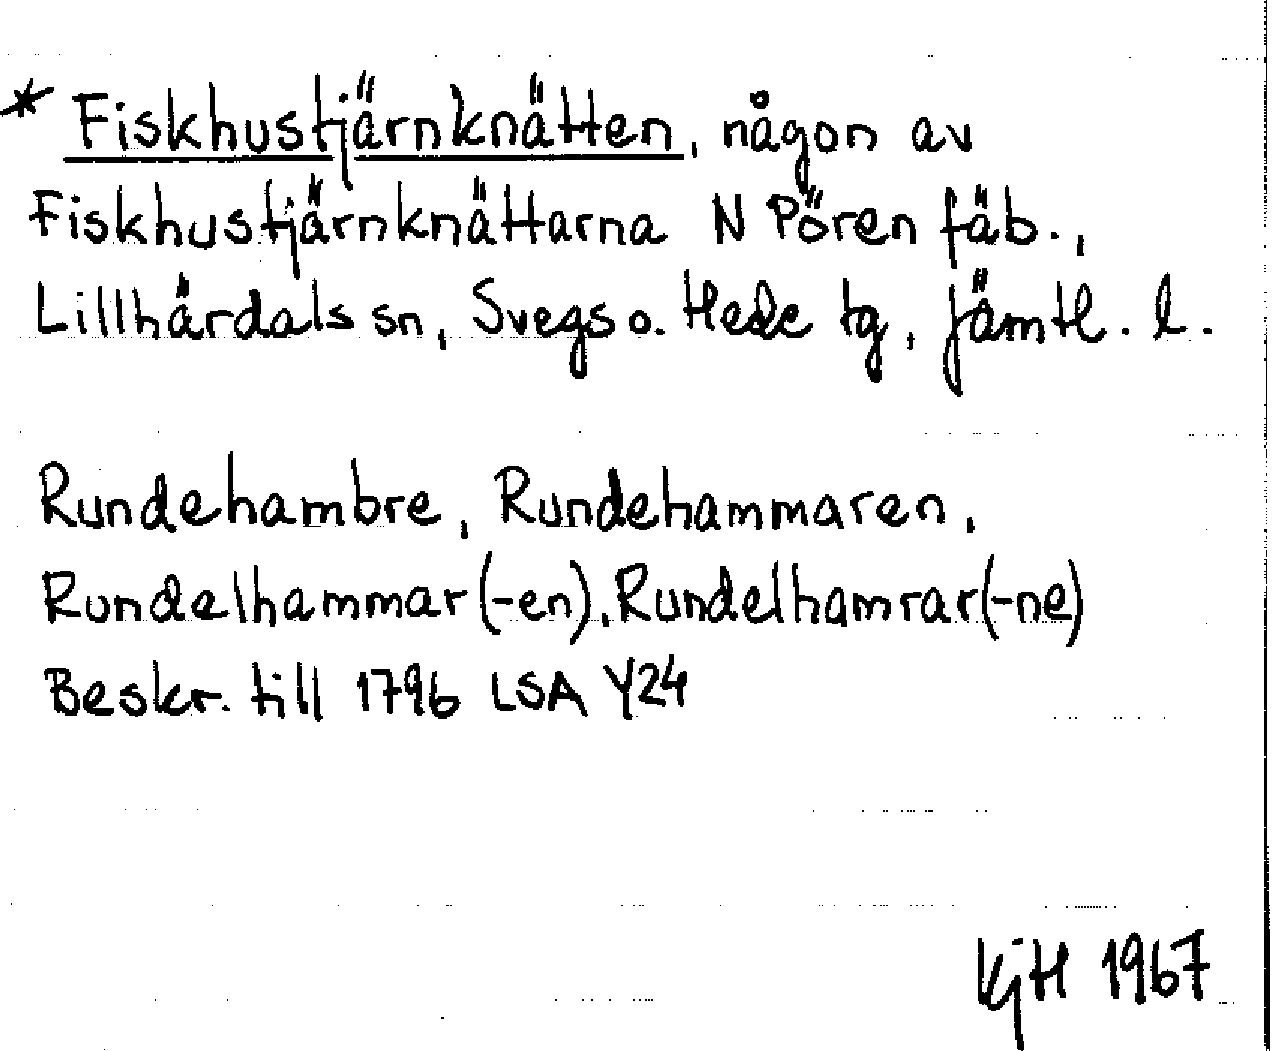 * Fiskhustjärnknätten, någon av
Fiskhustjärnknättarna N Pören fäb.,
Lillhärdals sn, Svegs o. Hede tg, Jämtl. l.
Rundehambre, Rundehammaren,
Rundelhammar(-en), Rundelhamrar(-ne)
Beskr. till 1796 LSA Y24
KjH 1967